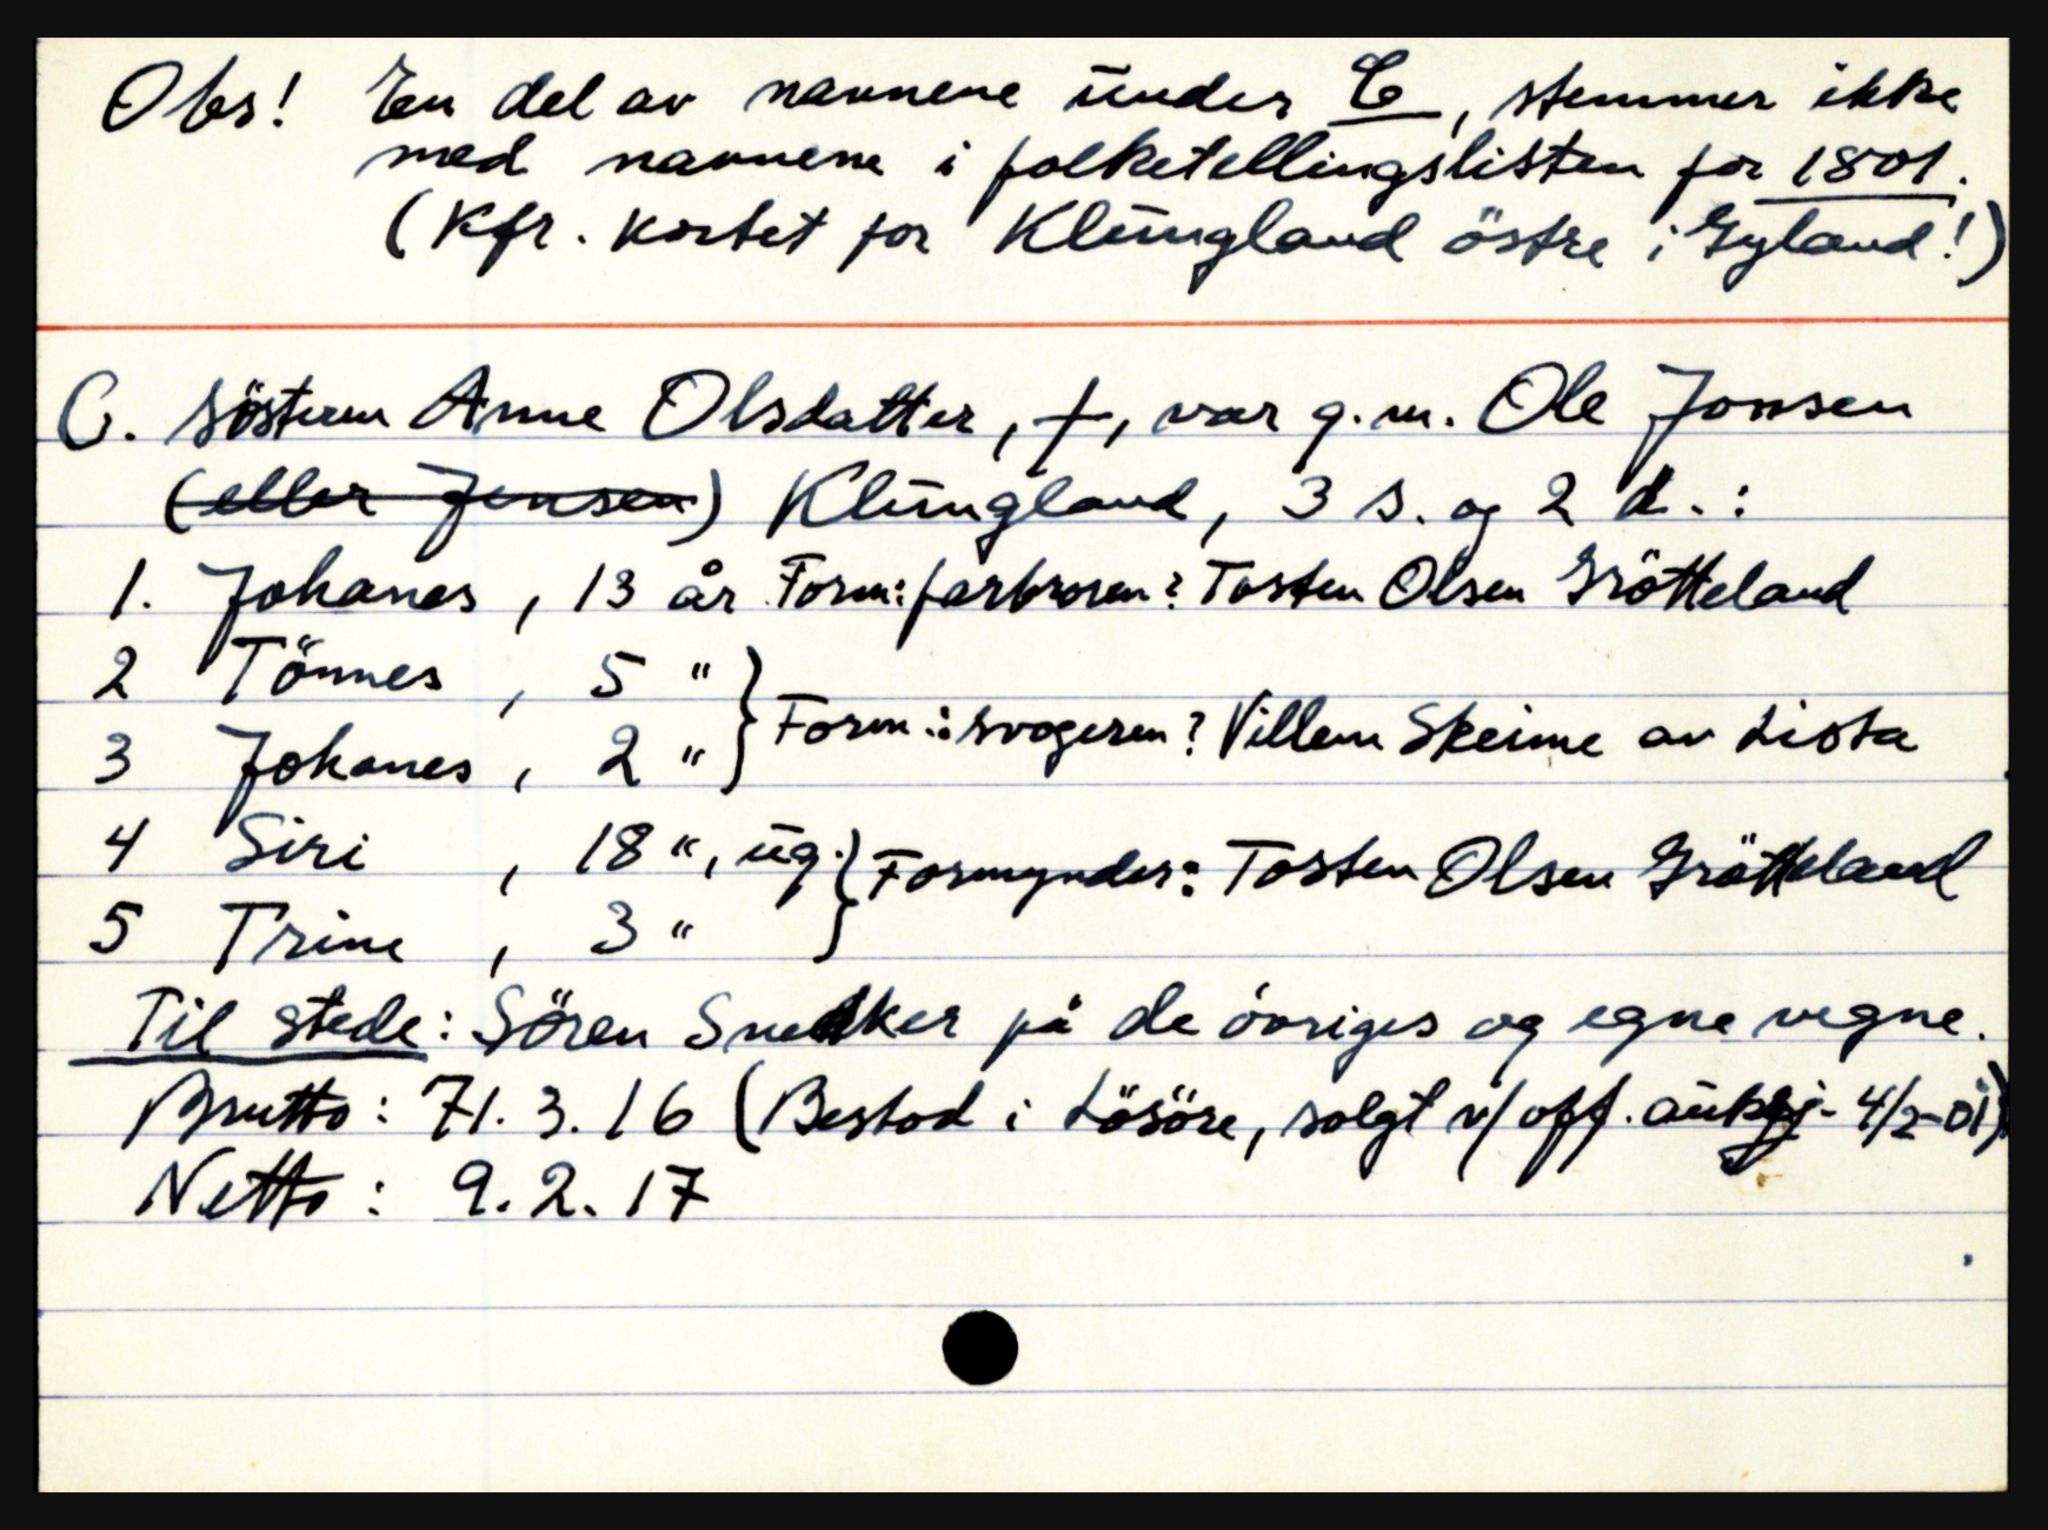 Obs! En del av navnene under C, stemmer ikke
med navnene i folketellingslisten for 1801.
(Kfr. kortet for Klungland östre i Gyland!)
C. Söstern Anne Olsdatter, †, var g.m. Ole Jonsen
(eller Jensen) Klungland, 3 s. og 2 d.:
1. Johanes, 13 år Form: farbroren? Tosten Olsen Grötteland
2 Tönnes, 5 "
} Form.: svogeren? Villem Skeime av Lista
3 Johanes, 2 "
4 Siri, 18 ", ug.
} Formynder: Tosten Olsen Grötteland
5 Trine, 3 "
Til stede: Sören Snedker på de övriges og egne vegne.
Brutto: 71.3.16 (Bestod i Lösöre, solgt v/ off. auksj. 4/2-01)
Netto: 9.2.17